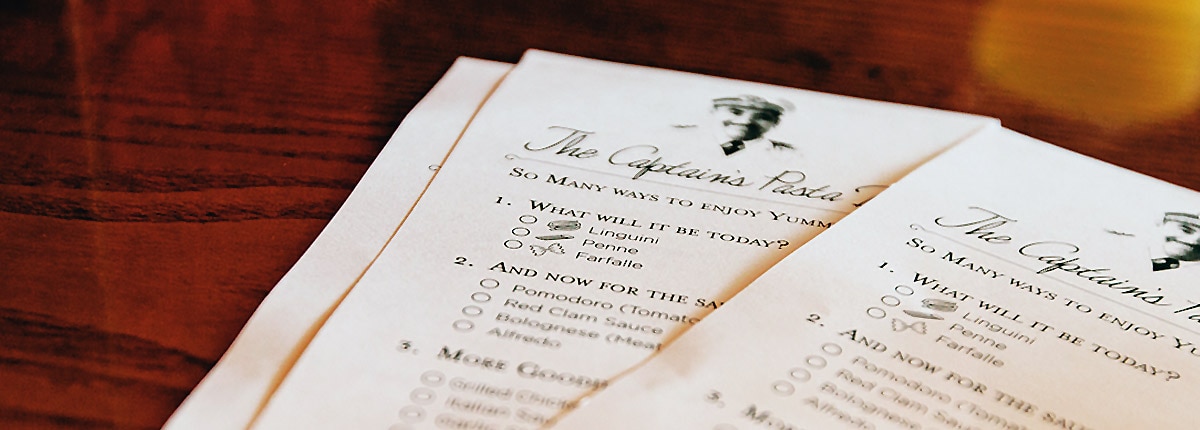 The Captain's Pasta
So Many ways to enjoy Yumm
1. What will it be today?
Linguini
Penne
Farfalle
2. And now for the sau
Pomodoro (Tomato
Red Clam Sauce
Bolognese (Meat
Alfredo
3. More Goodi
Grilled Chick
Italian Sau
The Captain's Pa
So Many ways to enjoy Yu
1. What will it be today?
Linguini
Penne
Farfalle
2. And now for the
Pomodoro (Tomat
Red Clam Sau
Bolognese
Alfredo
3. Mo